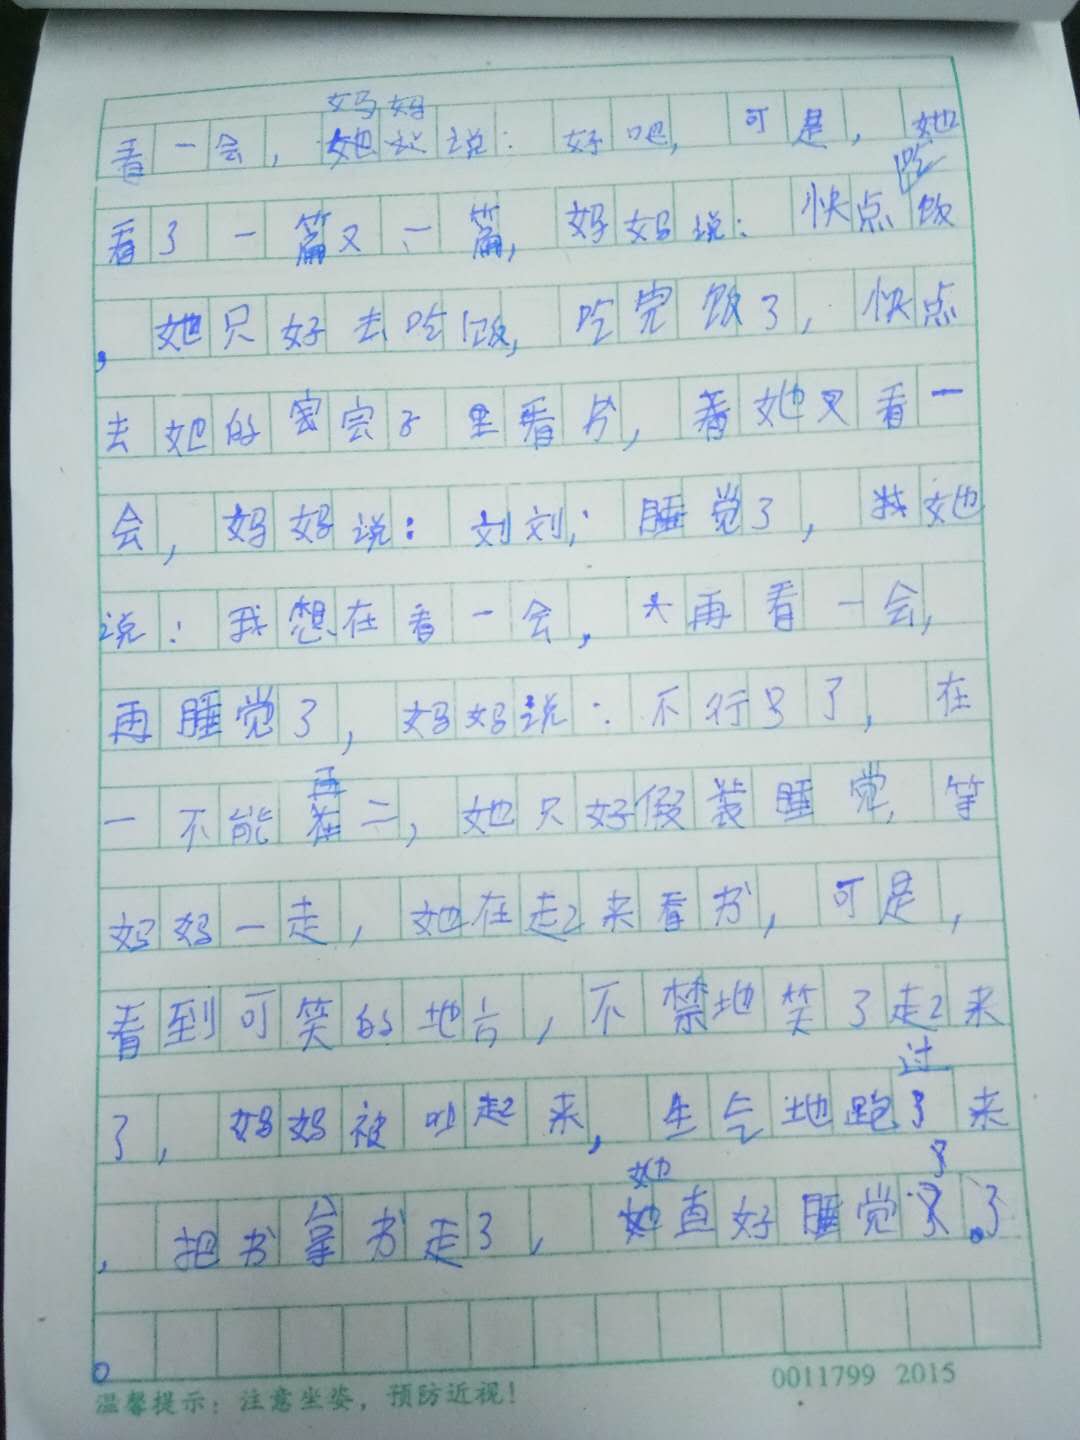 妈妈
看一会，她说说：好吧，可是，她
吃
看了一篇又一篇，妈妈说：快点饭
，她只好去吃饭，吃完饭了，快点
去她的室子里看书，看她又看一
会，妈妈说：刘刘；睡觉了，我她
说：我想在看一会，大再看一会，
再睡觉了，妈妈说：不行了，在
再
一不能在二，她只好假装睡觉，等
妈妈一走，她在起来看书，可是，
看到可笑的地方，不禁地笑了起来
过
了，妈妈被吵起来，生气地跑了来
她 了
，把书拿书走了，她直好睡觉了。
。
温馨提示：注意坐姿，预防近视！ 0011799 2015